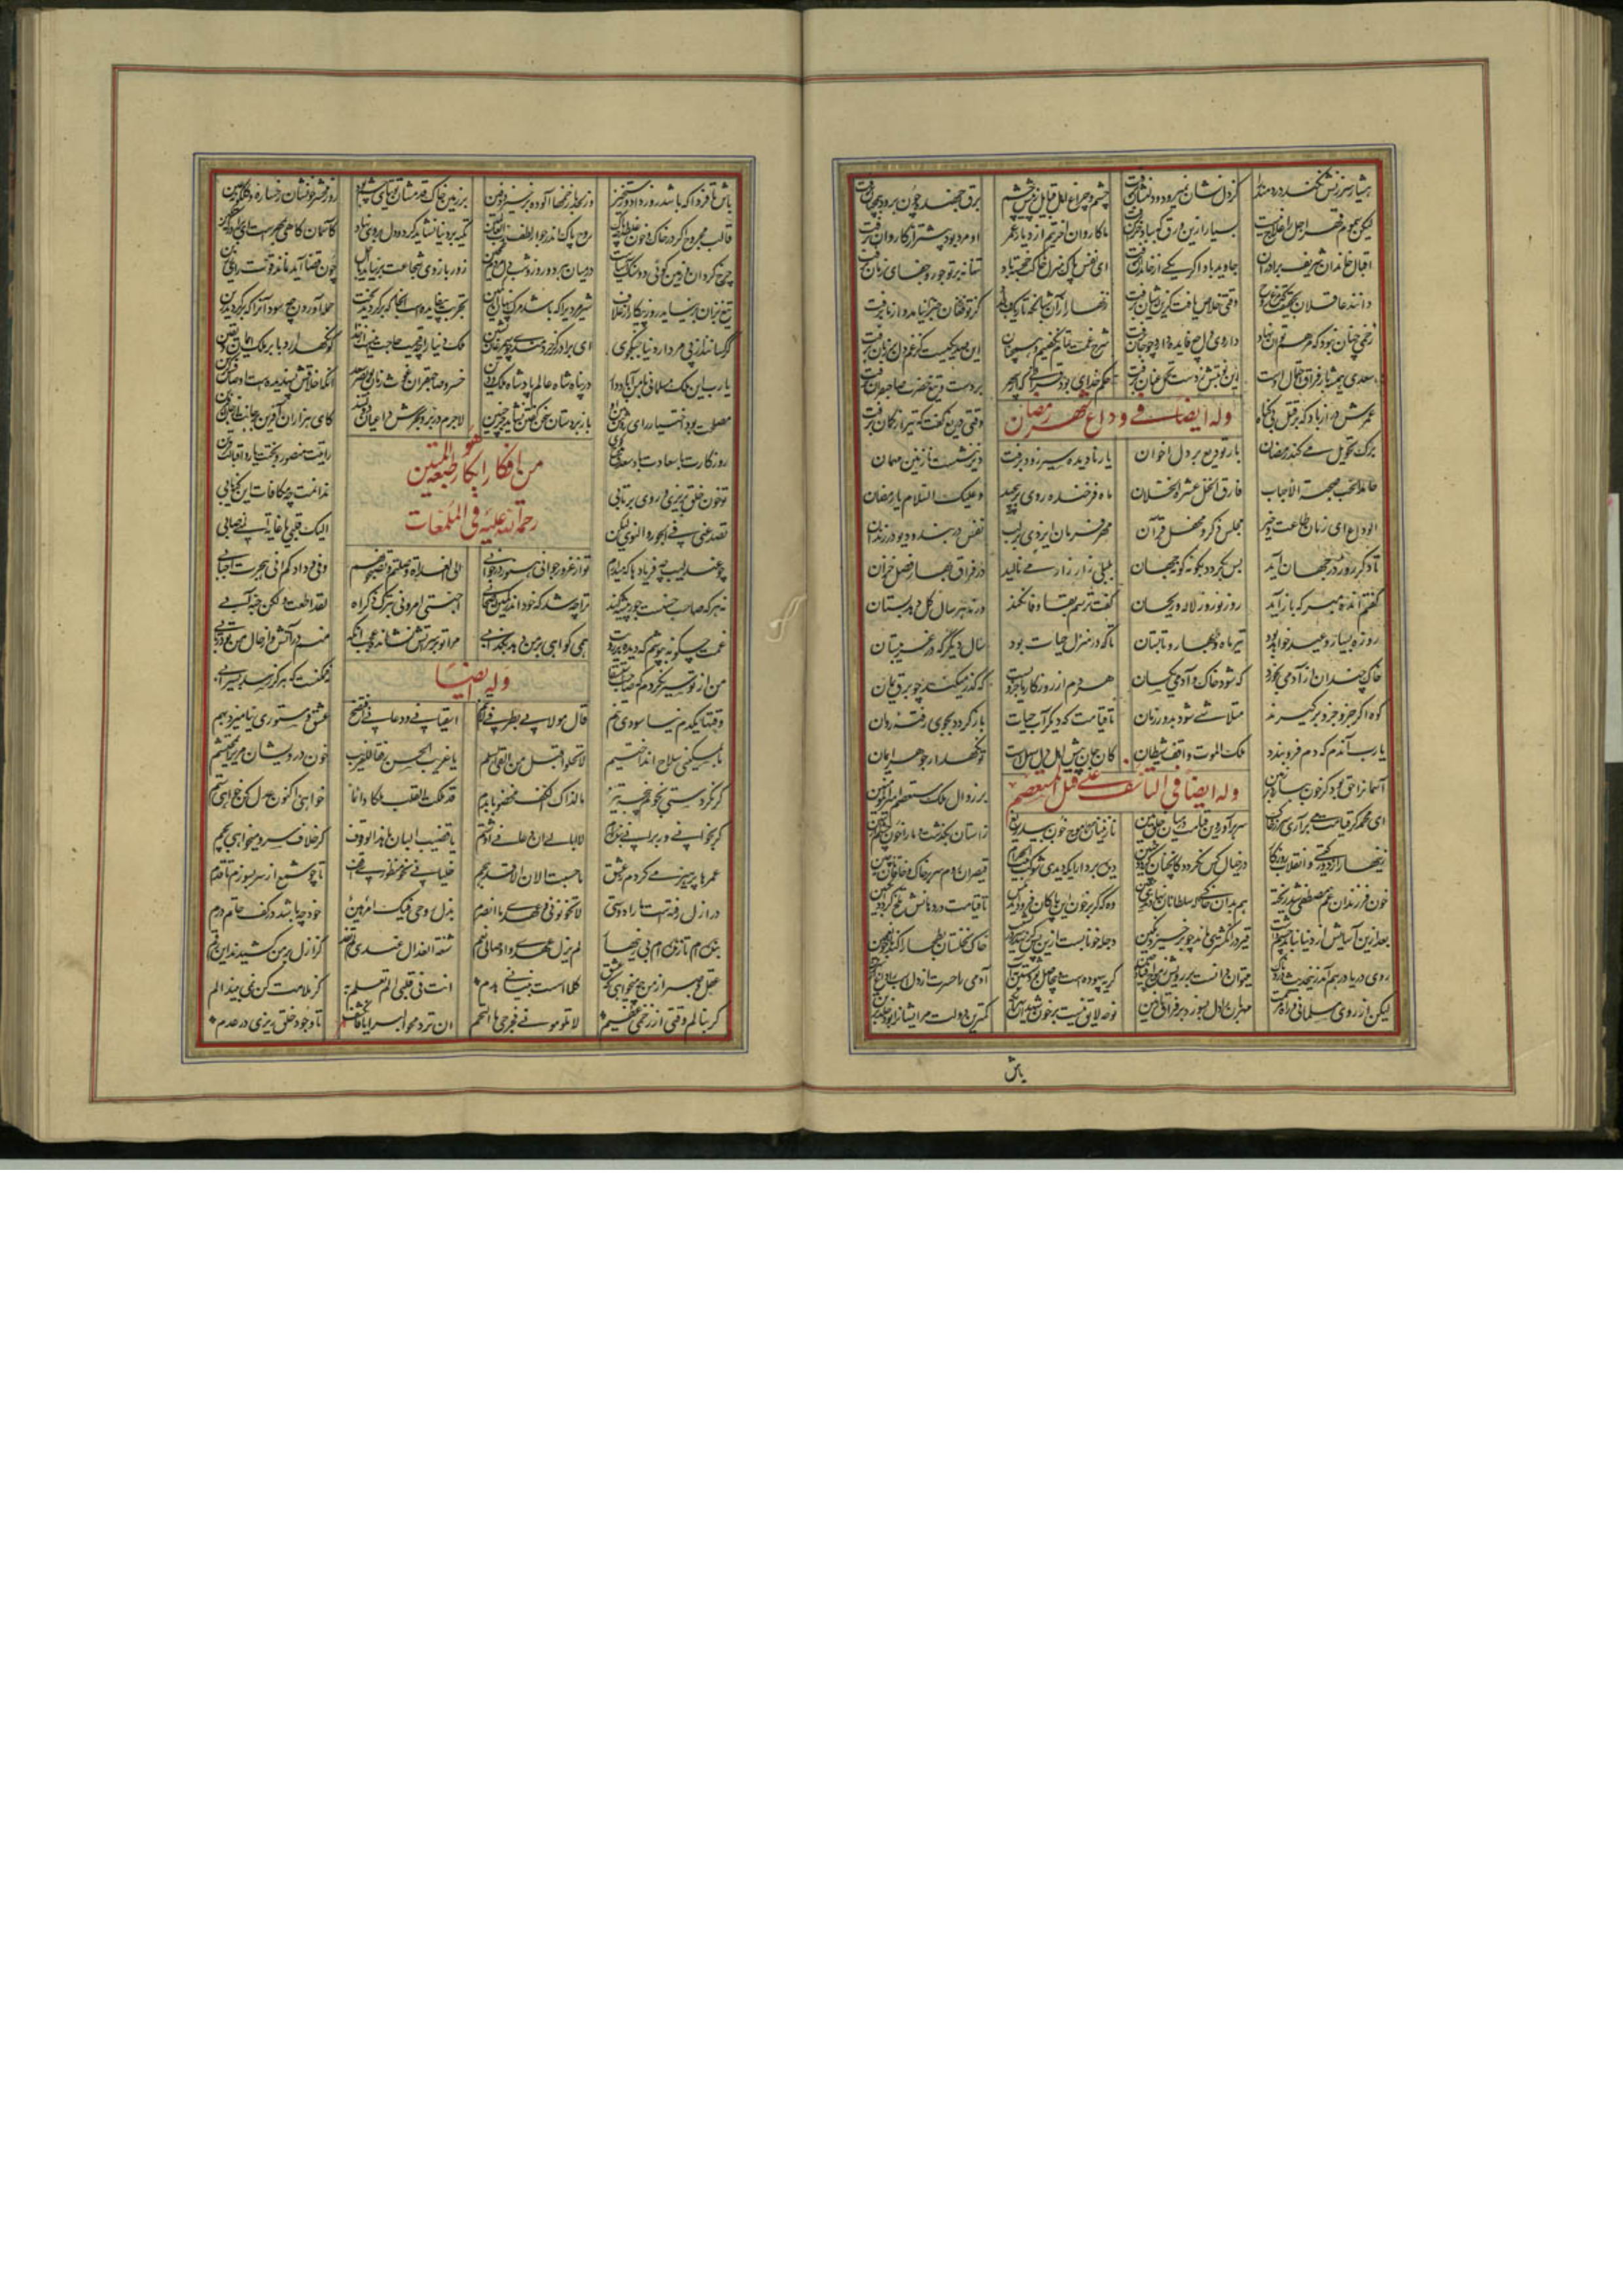 هشیار سرزنش نکند دردمند را کز دل نشان نمیرود و دلنشان برفت چشم و چراغ اهل قبایل ز پیش چشم برق جهنده چون برود همچنان برفت
لیکن سموم قهر اجل را علاج نیست بسیار ازین ورق که بباد خزان برفت ما کاروان آخریم از دیار عمر او مرد بود پیشتر از کاروان برفت
اقبال خاندان شریف و برادران جاوید باد اگر یکی از خاندان برفت ای نفس پاک منزل خاکت خجسته باد تنها نه بر تو جور و جفای زمان برفت
دانند عاقلان بحقیقت که مرغ روح وقتی خلاص یافت کزین آشیان برفت زنهار از آن شبانگه تاریک
زخمی چنان نبود که مرهم توان نهاد داروی دل چه فایده دارد چو جان برفت شرح غمت تمام نگفتیم و همچنان این صد یکیست کز غم دل بر زبان برفت
سعدی همیشه بار فراق احتمال اوست این نوبتش ز دست تحمل عنان برفت حکم خدای بود قرانی که از سپهر بر دست و تیغ حضرت صاحبقران برفت
عمرش دراز باد که بر قتل بی گناه وقتی دریغ گفت که تیر از کمان برفت
وله ایضا فی وداع شهر رمضان
برگ تحویل می کند رمضان بار تودیع بر دل اخوان یار نادیده سیر زود برفت دیر ننشست نازنین مهمان
صحبة الاحباب فارق الخل عشرة الخلان ماه فرخنده روی برپیچید و علیک السلام یا رمضان
الوداع ای زمان طاعت و خیر مجلس ذکر و محفل قرآن مهر فرمان ایزدی بر لب نفس در بند و دیو در زندان
تا دگر روزه در جهان آید بس بگردد بگونه گونه جهان بلبلی زار زار می نالید در فراق بهار فصل خزان
گفتم انده مبر که باز آید روز نوروز و لاله و ریحان گفت ترسم بقا وفا نکند ورنه هر سال گل دهد بستان
روزه بسیار و عید خواهد بود تیر ماه و بهار و تابستان تا که در منزل حیات بود سال دیگر که در غریبستان
خاک چندان از آدمی بخورد که شود خاک و آدمی یکسان هر دم از روزگار ما جزویست که گذر میکند چو برق یمان
کوه اگر جزو جزو برگیرند متلاشی شود بدور زمان تا قیامت که دیگر آب حیات باز گردد بجوی رفته روان
یارب آندم که دم فرو بندد ملک الموت واقف شیطان کار جان پیش اهل دل سهلست تو نگهدار جوهر ایمان
آسمانرا حق بود گر خون ببارد بر زمین بر زوال ملک مستعصم امیرالمومنین
وله ایضا فی التاسف علی قتل المستعصم
ای محمد گر قیامت می برآری سر ز خاک سر برآور وین قیامت در میان خلق بین نازنینان حرم را خون بیدریغ ز آستان بگذشت و ما را خون
زینهار از دور گیتی و انقلاب روزگار در خیال کس نگردد کانچنان گردد چنین دیده بردار ایکه دیدی شوکت بیت الحرام قیصران روم سر بر خاک و خاقان چین
خون فرزندان عم مصطفی شد ریخته هم بر آن خاکی که سلطانان نهادندی جبین وه که گر بر خون این پاکان فرود آید مگس تا قیامت در دهانش تلخ گردد انگبین
بعد ازین آسایش از دنیا نباید چشم داشت قیر در انگشتری ماند چو برخیزد نگین دجله خونابست ازین پس گر نهد سر در نشیب خاک نخلستان بطحا را کند با خون عجین
روی دریا در هم آمد زین حدیث دردناک میتوان دانست بر رویش ز موج افتاده چین گریه بیهوده است و بی حاصل بود شستن بآب آدمی را حسرت از دل اسب را داغ از سرین
لیکن از روی مسلمانی و راه مرحمت مهربان را دل بسوزد در فراق نازنین نوحه لایق نیست بر خون شهیدان زانکه کمترین دولت مر ایشانرا بود خلد برین
باش
باش تا فردا که باشد روز داد و رستخیز وز لحد با زخمها آلوده برخیزد دفین بر زمین خاک قدمشان توتیای چشم بود روز محشر خونشان رخساره
قالب مجروح اگر در خاک و خون غلطد چه باک روح پاک اندر جوار لطف رب العالمین تکیه بر دنیا نشاید کرد و دل بر وی نهاد کاسمان گاهی بمهرست ای برادر گه بکین
چرخ گردان بر زمین گوئی دو سنگ آسیاست در میان هر دو روز و شب دل مردم طحین زور بازوی شجاعت برنیاید با اجل چون قضا آید نماند قوت رای رزین
تیغ بران برنیاید روز پیکار از غلاف شیرمردی را که باشد مرگ پنهان در کمین تجربت بیفایده است آنجا که برگردید بخت حمله آوردن چه سود آنرا که برگردید زین
کرکسانند از پی مردار دنیا جنگجوی ای برادر گر خردمندی چو سیمرغان نشین ملک دنیا را چه قیمت حاجت اینست از خدا کو نگهدارد بما بر ملک ایمان و یقین
یارب این رکن مسلمانی بامن آباد دار در پناه شاه عادل پادشاه ملک و دین خسرو صاحبقران غوث زمان بوبکر سعد آنکه اخلاقش پسندیده است و اوصافش گزین
مصلحت بود اختیار رای روشن بین او با زبردستان سخن گفتن نشاید جز بلین لاجرم در بر و بحرش داعیان دولتند کای هزاران آفرین بر جانت از جان آفرین
روزگارت با سعادت باد رایتت منصور و بختت یار و اقبالت قرین
من افکار ابکار طبعه المتین
رحمة الله علیه فی الملمعات
تو خون خلق بریزی و روی برتابی ندانمت چه مکافات این گناه یابی
تصد عنی فی الجور و النوی لیکن الیک قلبی یا غایة المنی صابی
چو عندلیب چه فریادها که میدارم تو از غرور جوانی همیشه در خوابی الی العداة وصلتم و تصحبونهم و فی ودادکم قد هجرت احبابی
نه هر که صاحب حسنست جور پیشه کند ترا چه شد که خود اندر کمین اصحابی احبتی امرونی بترک ذکراه لقد اطعت ولکن حبه آبی
غمت چگونه بپوشم که دیده بر رویت همی گواهی بر من دهد بکذابی مرا تو بر سر آتش نشانده عجب آنکه منم در آتش و از حال من تو در تابی
من از تو سیر نگردم که صاحب استسقا نه ممکنست که هرگز رسد بسیرابی
وله ایضا
وقتها یکدم نیاسودی تنم قال مولائی لطرفی لا تنم اسقیانی و دعانی افتضح عشق و مستوری نیامیزد بهم
ما بمسکینی سلاح انداختیم لا تحلوا قتل من القی السلم یا غریب الحسن رفقا بالغریب خون درویشان مریز ای محتشم
گر نکردستی بخونم پنجه تیز ما لذاک الکف مخضوبا بدم قد ملکت القلب ملکا دائما خواهی اکنون عدل کن خواهی ستم
گر بخوانی ور برانی بندهام لا ابالی ان دعانی او شتم یا قضیب البان ما هذا الوقوف گر خلاف سرو میخواهی بچم
عمرها پرهیز می کردم ز عشق ما حسبت الان الا قد هجم خلیانی نحو منظوری اقف تا چو شمع از سر بسوزم تا قدم
در ازل رفتست ما را دوستی لا تخونونی فعهدی ما انصرم بذل روحی فیک امر هین خود چه باشد در کف حاتم درم
بنده ام تا زنده ام بی زینهار لم ازل عبدا و اوصالی رمم شنعة العذال عندی لم تفد کز ازل بر من کشیدند این رقم
عقل و صبر از من چه میخواهی که عشق کلما اسست بنیانا هدم انت فی قلبی الم تعلم به کز ملامت کن نمی بیند الم
گر بنالم وقتی از زخمی قدیم لا تلومونی فجرحی ما التحم ان ترد محو البرایا فانکشف تا وجود خلق ریزی در عدم